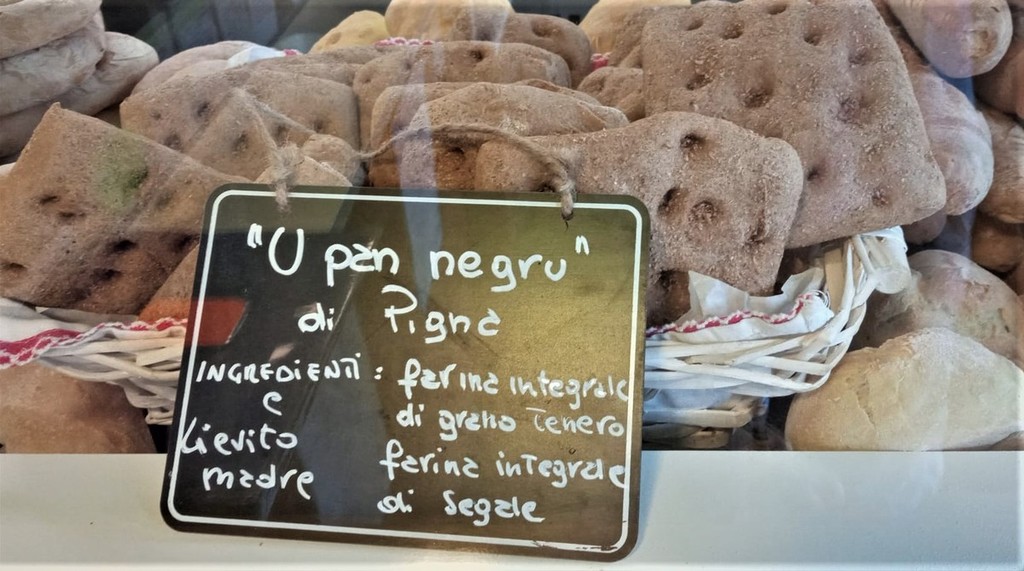 "U pan negru"
di Pigna
INGREDIENTI : farina integrale
e di grano Tenero
Lievito farina inTegrale
madre di Segale